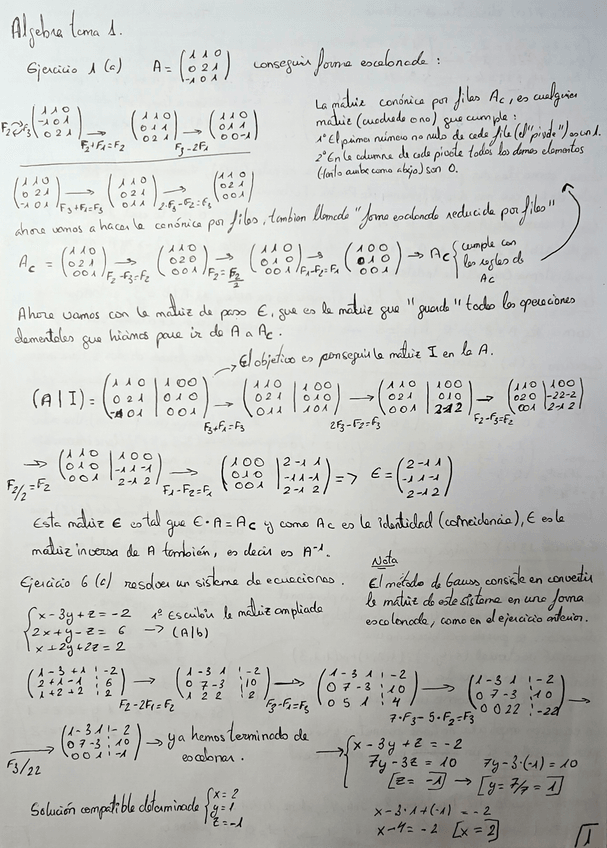 Algebra tema 1.
Ejercicio 1 (a) A = (1 1 0 / 0 2 1 / -1 0 1) conseguir forma escalonada:
F2↔F3 (1 1 0 / -1 0 1 / 0 2 1) → F2+F1=F2 (1 1 0 / 0 1 1 / 0 2 1) → F3-2F1 (1 1 0 / 0 1 1 / 0 0 -1)
La matriz canónica por filas Ac, es cualquier
matriz (cuadrada o no) que cumple:
1º El primer número no nulo de cada fila (el "pivote") es un 1.
2º En la columna de cada pivote todos los demas elementos
(tanto arriba como abajo) son 0.
(1 1 0 / 0 2 1 / -1 0 1) → F3+F1=F3 (1 1 0 / 0 2 1 / 0 1 1) → 2·F3-F2=F3 (1 1 0 / 0 2 1 / 0 0 1)
ahora vamos a hacer la canónica por filas, tambien llamada "forma escalonada reducida por filas"
Ac = (1 1 0 / 0 2 1 / 0 0 1) → F2-F3=F2 (1 1 0 / 0 2 0 / 0 0 1) → F2=F2/2 (1 1 0 / 0 1 0 / 0 0 1) → F1-F2=F1 (1 0 0 / 0 1 0 / 0 0 1) → Ac { cumple con
las reglas de
Ac
Ahora vamos con la matriz de paso E, que es la matriz que "guarda" todas las operaciones
elementales que hicimos para ir de A a Ac.
→ El objetivo es conseguir la matriz I en la A.
(A|I) = (1 1 0 | 1 0 0 / 0 2 1 | 0 1 0 / -1 0 1 | 0 0 1) → F3+F1=F3 (1 1 0 | 1 0 0 / 0 2 1 | 0 1 0 / 0 1 1 | 1 0 1) → 2F3-F2=F3 (1 1 0 | 1 0 0 / 0 2 1 | 0 1 0 / 0 0 1 | 2 -1 2) → F2-F3=F2 (1 1 0 | 1 0 0 / 0 2 0 | -2 2 -2 / 0 0 1 | 2 -1 2)
→ F2/2=F2 (1 1 0 | 1 0 0 / 0 1 0 | -1 1 -1 / 0 0 1 | 2 -1 2) → F1-F2=F1 (1 0 0 | 2 -1 1 / 0 1 0 | -1 1 -1 / 0 0 1 | 2 -1 2) => E = (2 -1 1 / -1 1 -1 / 2 -1 2)
Esta matriz E es tal que E·A=Ac y como Ac es la identidad (coincidencia), E es la
matriz inversa de A también, es decir es A⁻¹.
Ejercicio 6 (a) resolver un sistema de ecuaciones.
Nota
El método de Gauss consiste en convertir
la matriz de este sistema en una forma
escalonada, como en el ejercicio anterior.
{ x - 3y + z = -2
2x + y - z = 6
x + 2y + 2z = 2
1º Escribir la matriz ampliada
→ (A|b)
(1 -3 +1 | -2 / 2 +1 -1 | 6 / 1 +2 +2 | 2) → F2-2F1=F2 (1 -3 1 | -2 / 0 7 -3 | 10 / 1 2 2 | 2) → F3-F1=F3 (1 -3 1 | -2 / 0 7 -3 | 10 / 0 5 1 | 4) → 7·F3-5·F2=F3 (1 -3 1 | -2 / 0 7 -3 | 10 / 0 0 22 | -22) →
→ F3/22 (1 -3 1 | -2 / 0 7 -3 | 10 / 0 0 1 | -1) → ya hemos terminado de
escalonar.
→ { x - 3y + z = -2
7y - 3z = 10
[z = -1] →
7y - 3·(-1) = 10
[y = 7/7 = 1]
x - 3·1 + (-1) = -2
x - 4 = -2 [x = 2]
Solución compatible determinada { x = 2
y = 1
z = -1
1